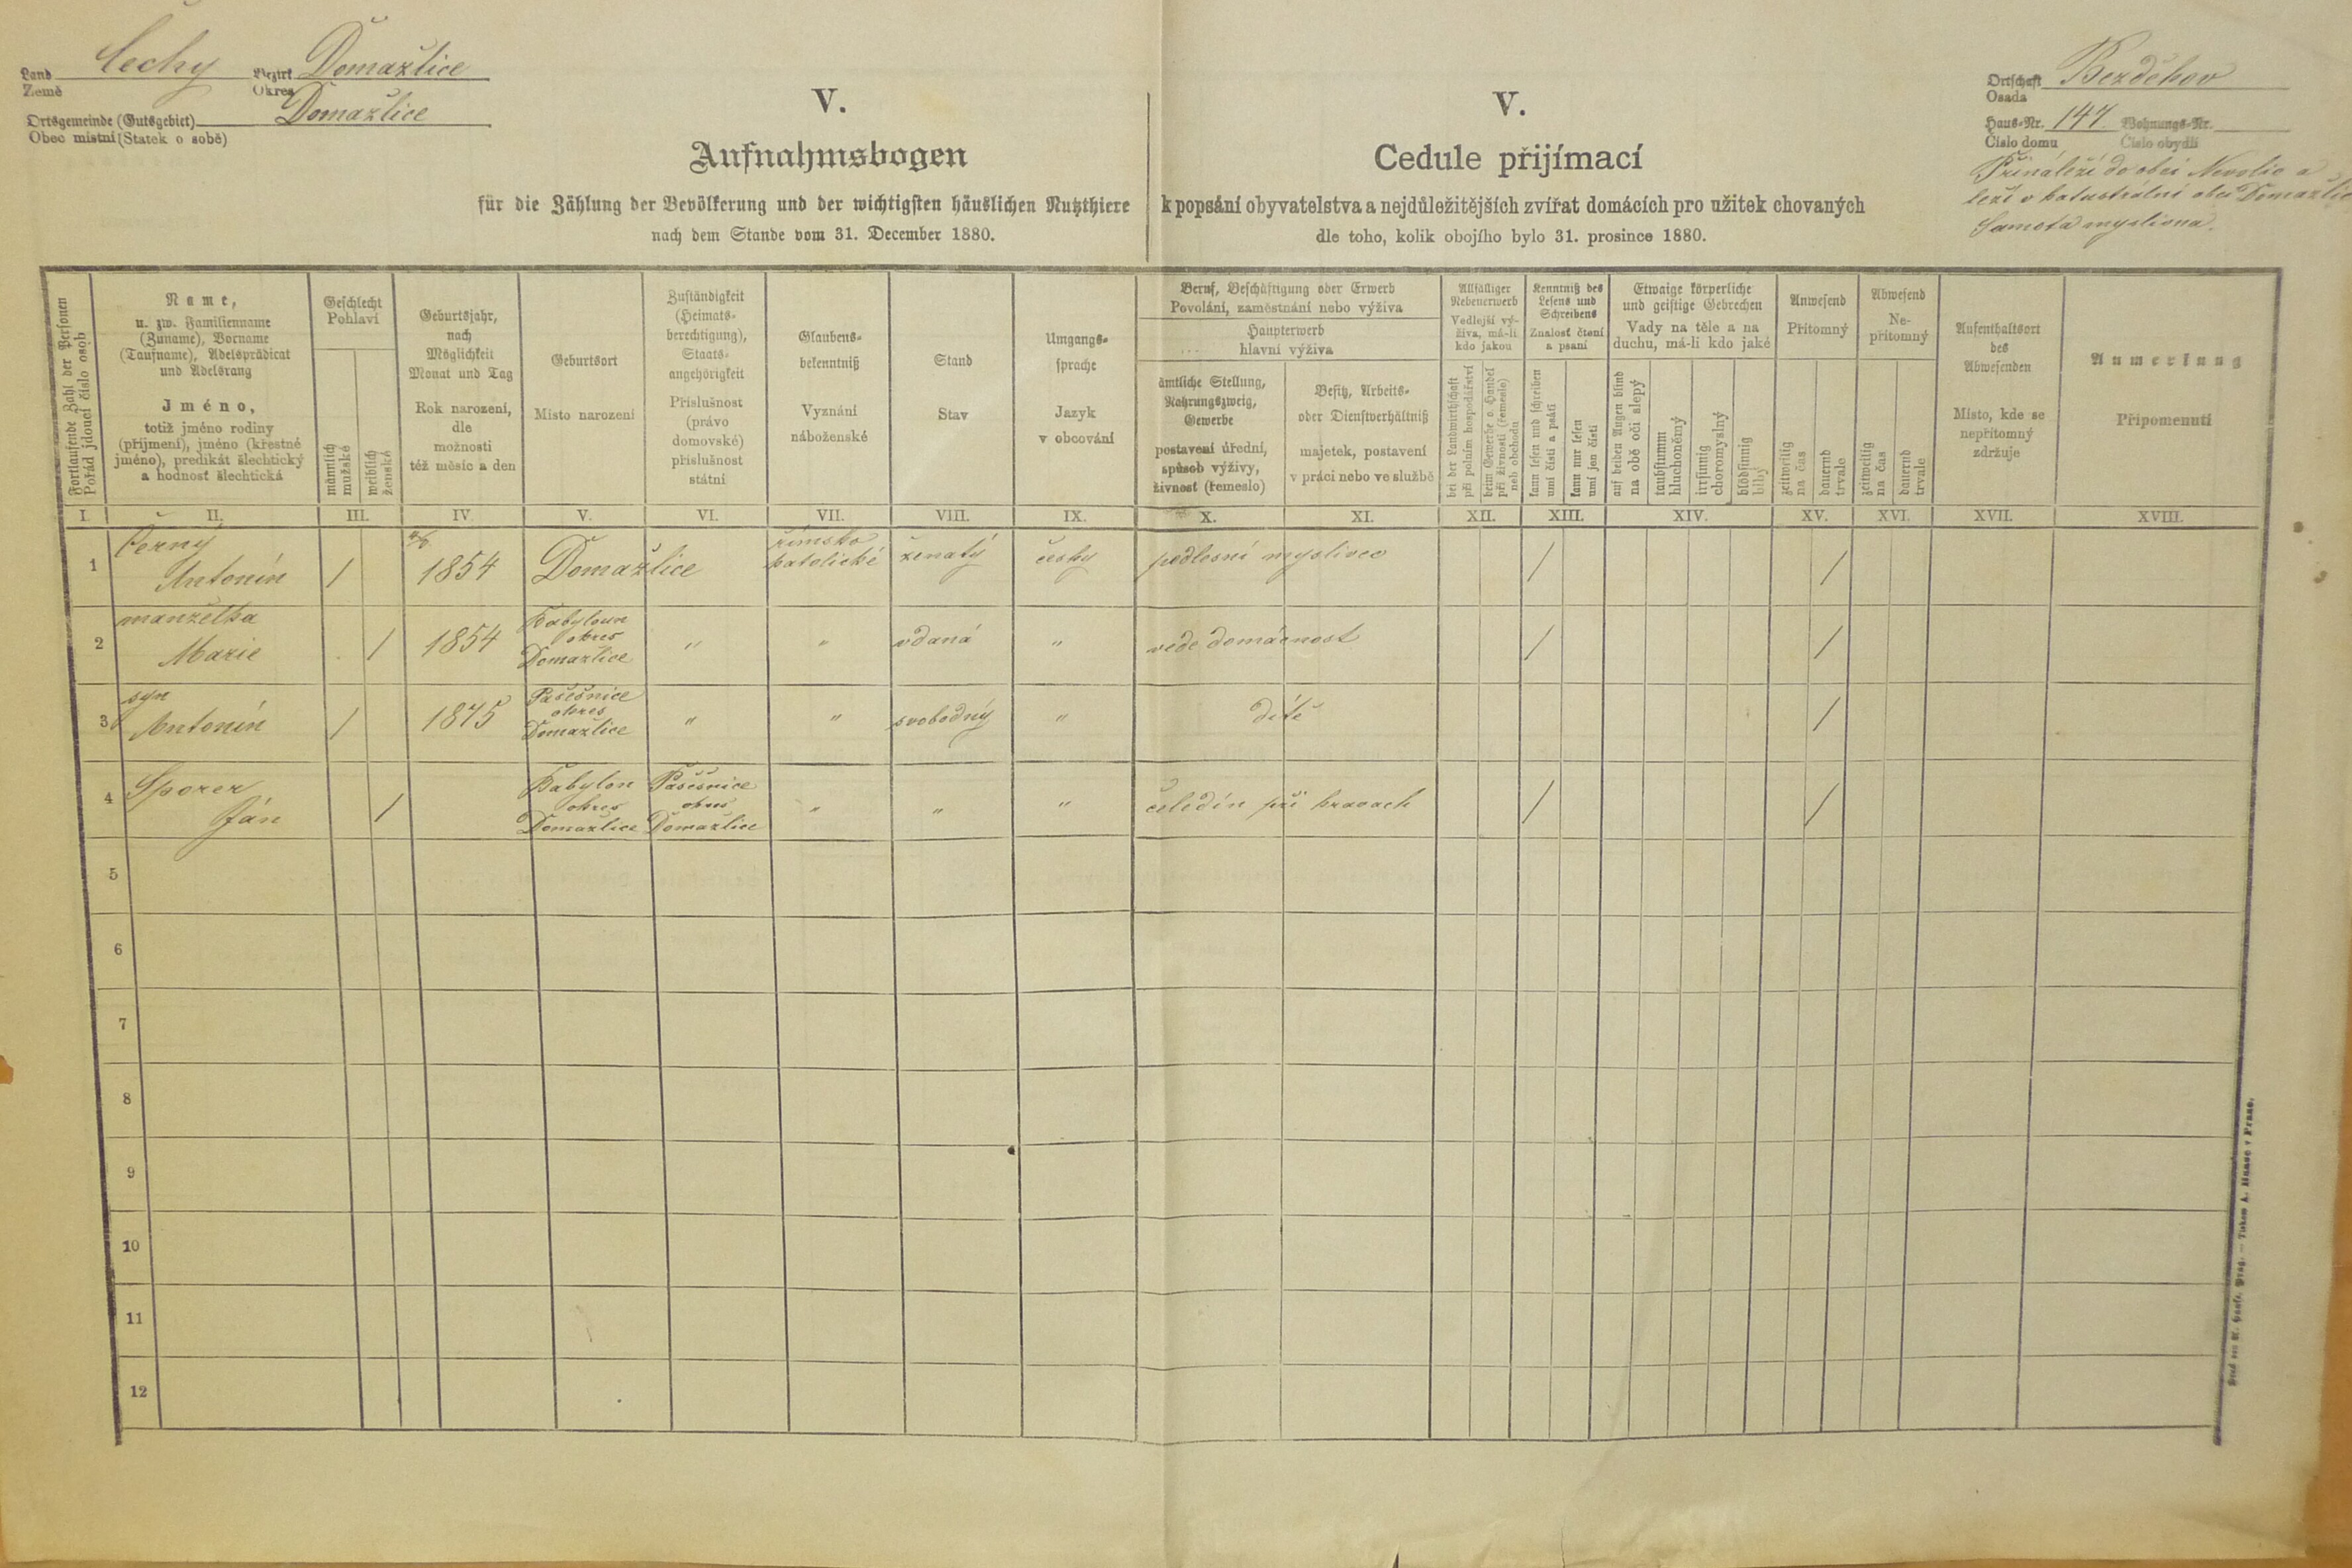 Land Čechy Bezirk Domažlice
Země Okres
Ortsgemeinde (Gutsgebiet) Domažlice
Obec místní (Statek o sobě)
V.
Aufnahmsbogen
für die Zählung der Bevölkerung und der wichtigsten häuslichen Nutzthiere
nach dem Stande vom 31. December 1880.
V.
Cedule přijímací
k popsání obyvatelstva a nejdůležitějších zvířat domácích pro užitek chovaných
dle toho, kolik obojího bylo 31. prosince 1880.
Ortschaft Bezděkov
Osada
Haus-Nr. 147. Wohnungs-Nr.
Číslo domu Číslo obydlí
Přináleží do obci Nevolic a
leží v katastrální obci Domažlic
Samota myslivna.
Fortlaufende Zahl der Personen
Pořád jdoucí číslo osob
Name,
u. zw. Familienname
(Zuname), Vorname
(Taufname), Adelsprädicat
und Adelsrang
Jméno,
totiž jméno rodiny
(příjmení), jméno (křestné
jméno), predikát šlechtický
a hodnosť šlechtická
Geschlecht
Pohlaví
männlich
mužské
weiblich
ženské
Geburtsjahr,
nach
Möglichkeit
Monat und Tag
Rok narození,
dle
možnosti
též měsíc a den
Geburtsort
Místo narození
Zuständigkeit
(Heimats-
berechtigung),
Staats-
angehörigkeit
Příslušnost
(právo
domovské)
příslušnost
státní
Glaubens-
bekenntniß
Vyznání
náboženské
Stand
Stav
Umgangs-
sprache
Jazyk
v obcování
Beruf, Beschäftigung oder Erwerb
Povolání, zaměstnání nebo výživa
Haupterwerb
hlavní výživa
ämtliche Stellung,
Nahrungszweig,
Gewerbe
postavení úřední,
spůsob výživy,
živnost (řemeslo)
Besitz, Arbeits-
oder Dienstverhältniß
majetek, postavení
v práci nebo ve službě
Allfälliger
Nebenerwerb
Vedlejší vý-
živa, má-li
kdo jakou
bei der Landwirthschaft
při polním hospodářství
beim Gewerbe o. Handel
při živnosti (řemesle)
nebo obchodu
Kenntniß des
Lesens und
Schreibens
Znalosť čtení
a psaní
kann lesen und schreiben
umí čísti a psáti
kann nur lesen
umí jen čísti
Etwaige körperliche
und geistige Gebrechen
Vady na těle a na
duchu, má-li kdo jaké
auf beiden Augen blind
na obě oči slepý
taubstumm
hluchoněmý
irrsinnig
choromyslný
blödsinnig
blbý
Anwesend
Přítomný
zeitweilig
na čas
dauernd
trvale
Abwesend
Ne-
přítomný
zeitweilig
na čas
dauernd
trvale
Aufenthaltsort
des
Abwesenden
Místo, kde se
nepřítomný
zdržuje
Anmerkung
Připomenutí
I. II. III. IV. V. VI. VII. VIII. IX. X. XI. XII. XIII. XIV. XV. XVI. XVII. XVIII.
1 Černý Antonín / 1854 Domažlice římsko katolické ženatý česky podlesní myslivec / /
2 manželka Marie / 1854 Babyloun okres Domažlice " " vdaná " vede domácnost / /
3 syn Antonín / 1875 Pasečnice okres Domažlice " " svobodný " dítě /
4 Sporer Ján / Babylon okres Domažlice Pasečnice okres Domažlice " " " čeledín při kravach / /
5
6
7
8
9
10
11
12